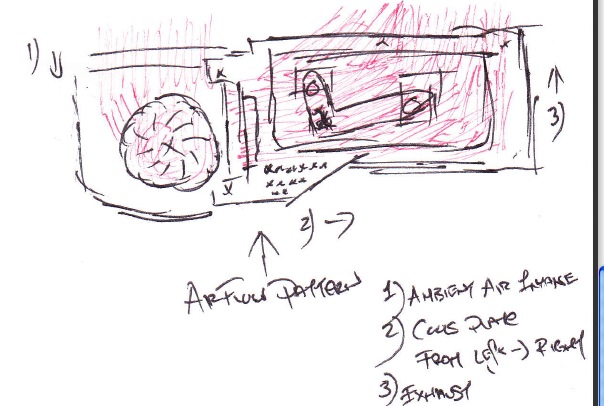 1)
3)
2) →
AIRFLOW PATTERN
1) AMBIENT AIR INTAKE
2) COOLS PLATE
FROM LEFT → RIGHT
3) EXHAUST